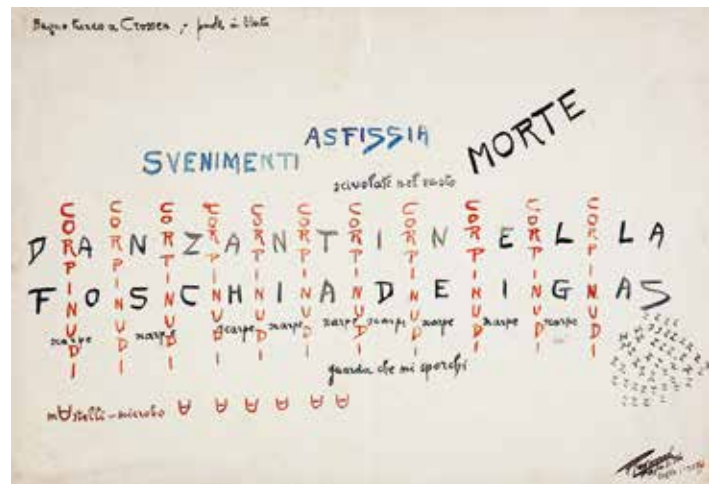 Bagno turco a Crossen
ASFISSIA
MORTE
SVENIMENTI
scivolate nel vasto
CORPI NUDI CORPI NUDI CORPI NUDI CORPI NUDI CORPI NUDI CORPI NUDI CORPI NUDI CORPI NUDI CORPI NUDI CORPI NUDI CORPI NUDI
DANZANTI NELLA
FOSCHIA DEI GAS
scarpe scarpe scarpe scarpe scarpe scarpe scarpe scarpe scarpe
guarda che mi sporchi
mastelli-microbo
z z z z z z z z z z